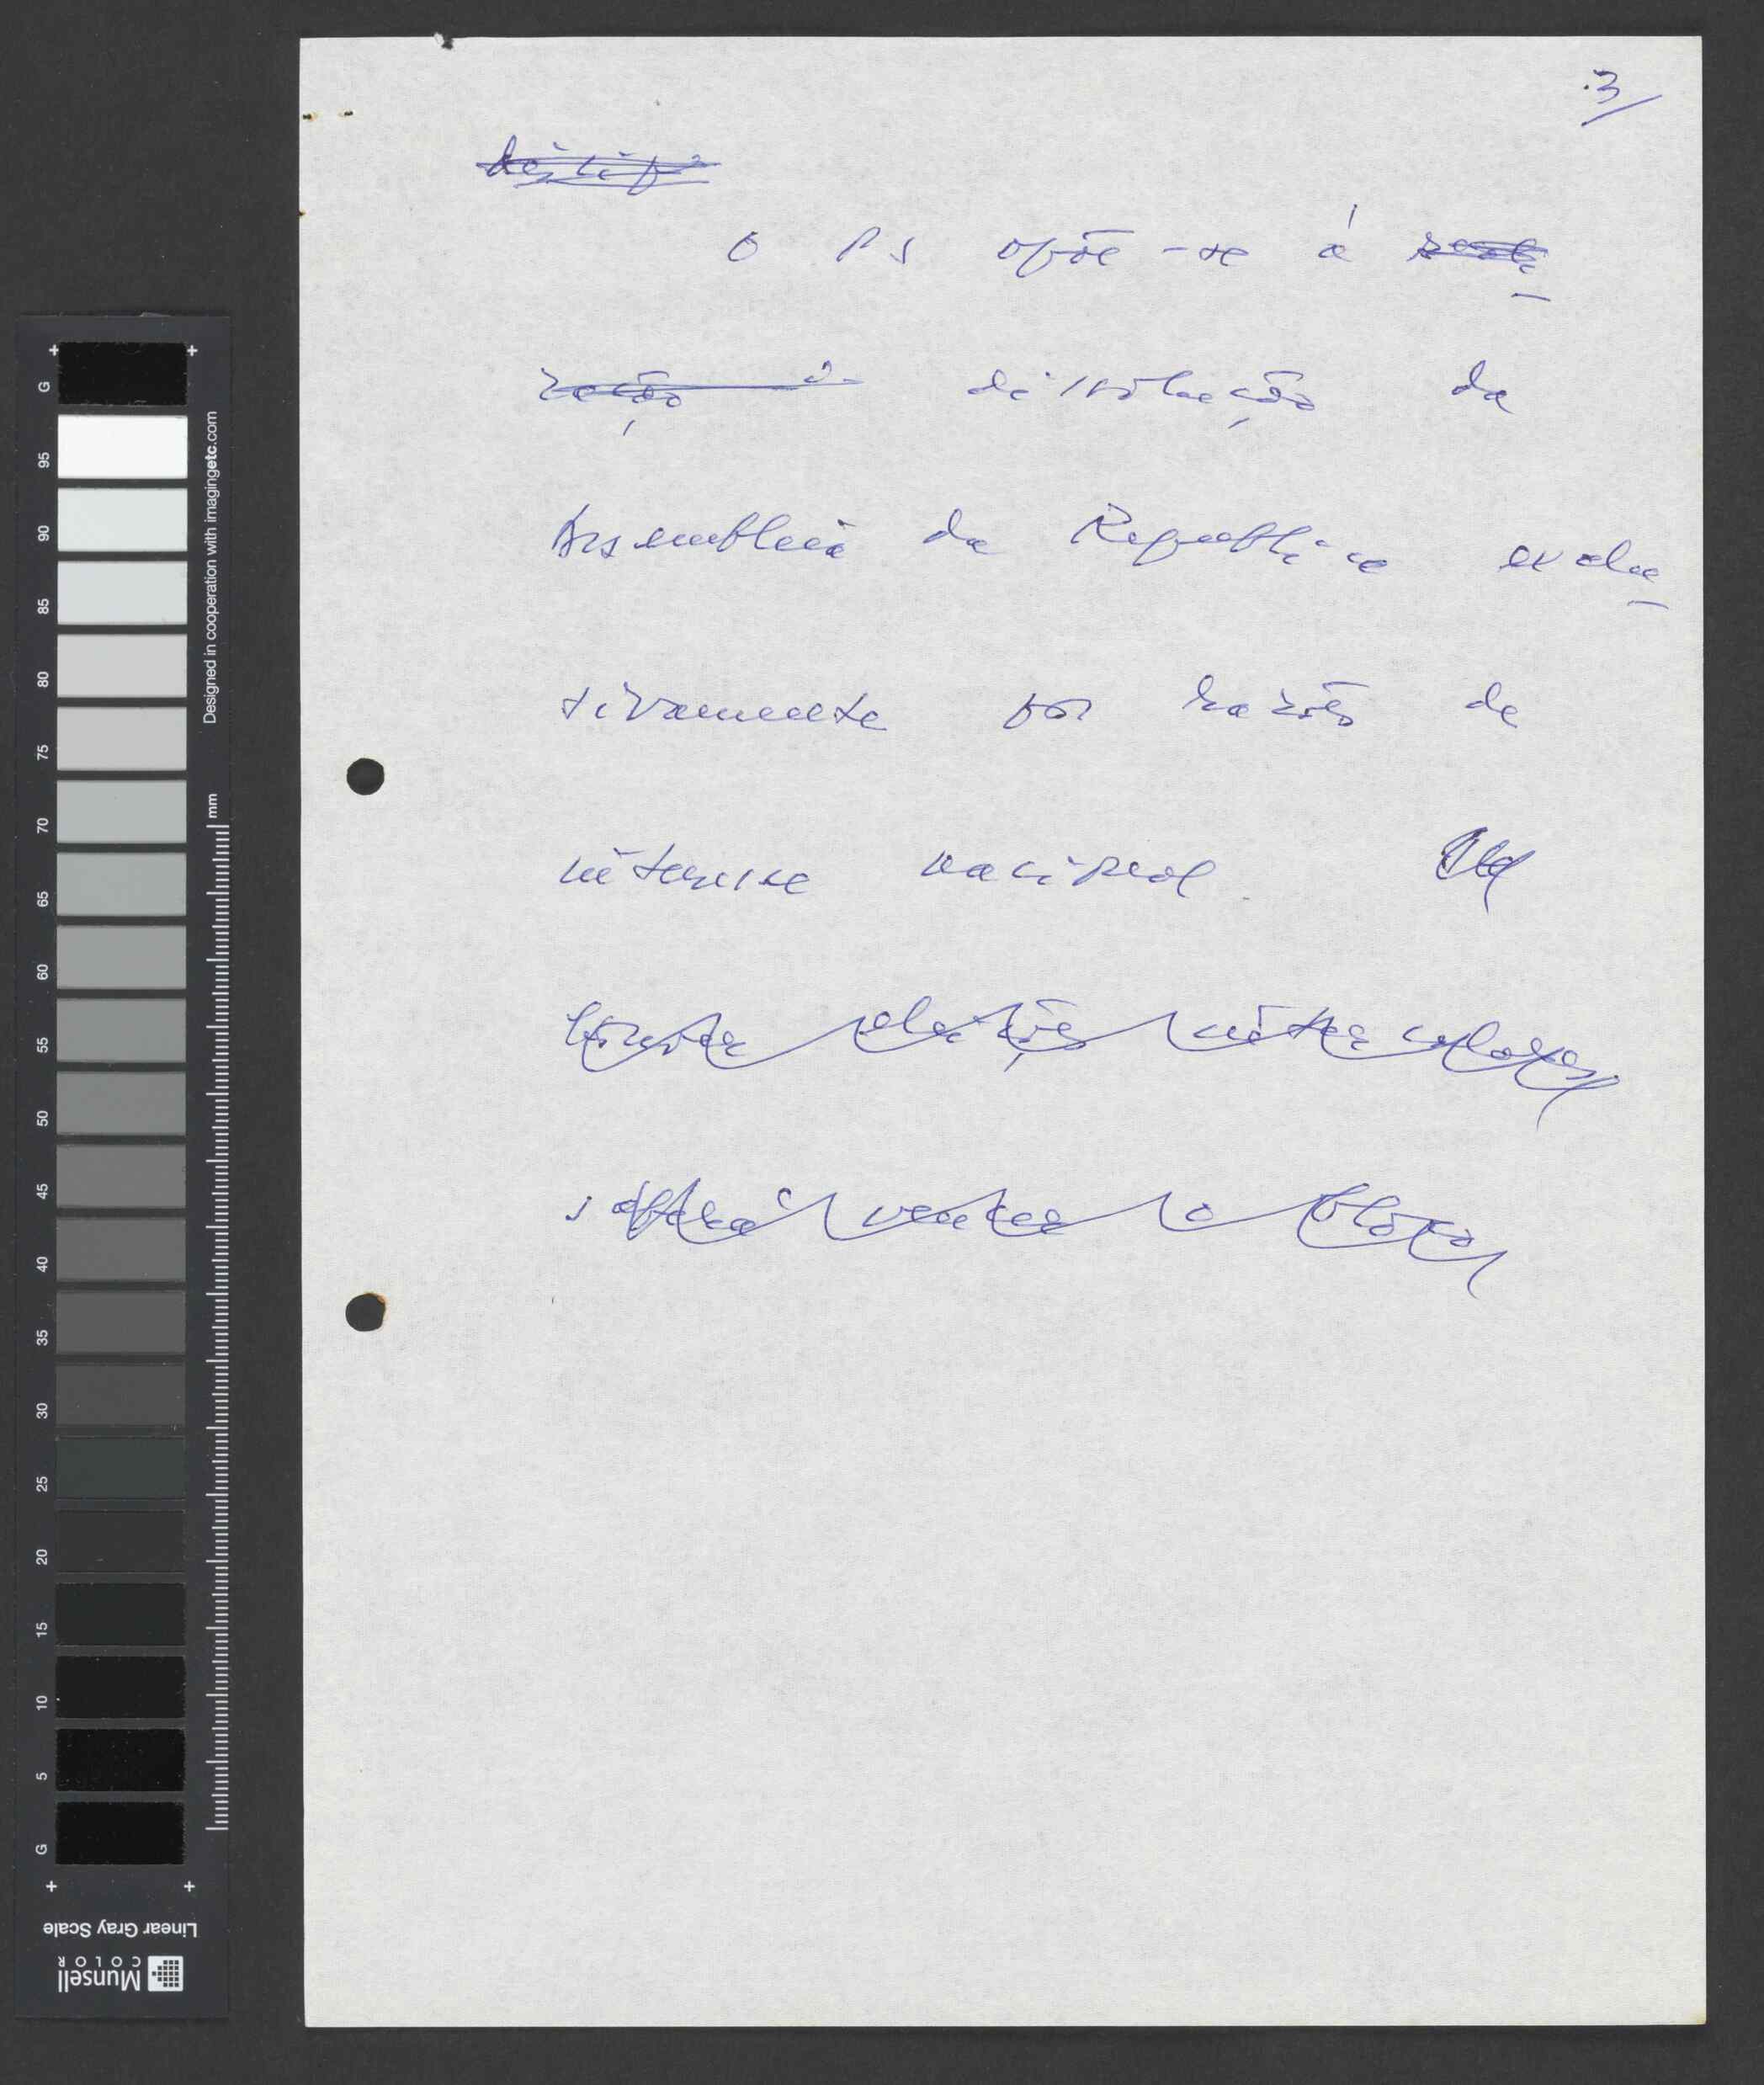 3/
O PS opõe-se à reali-
zação da dissolução da
Assembleia da Republica exclu-
sivamente por razões de
interesse nacional.
eleições intercalares
saberá vencer o bloco
G
95
90
85
80
75
70
65
60
55
50
45
40
35
30
25
20
15
10
5
G
Designed in cooperation with imagingetc.com
mm
Linear Gray Scale
Munsell
COLOR